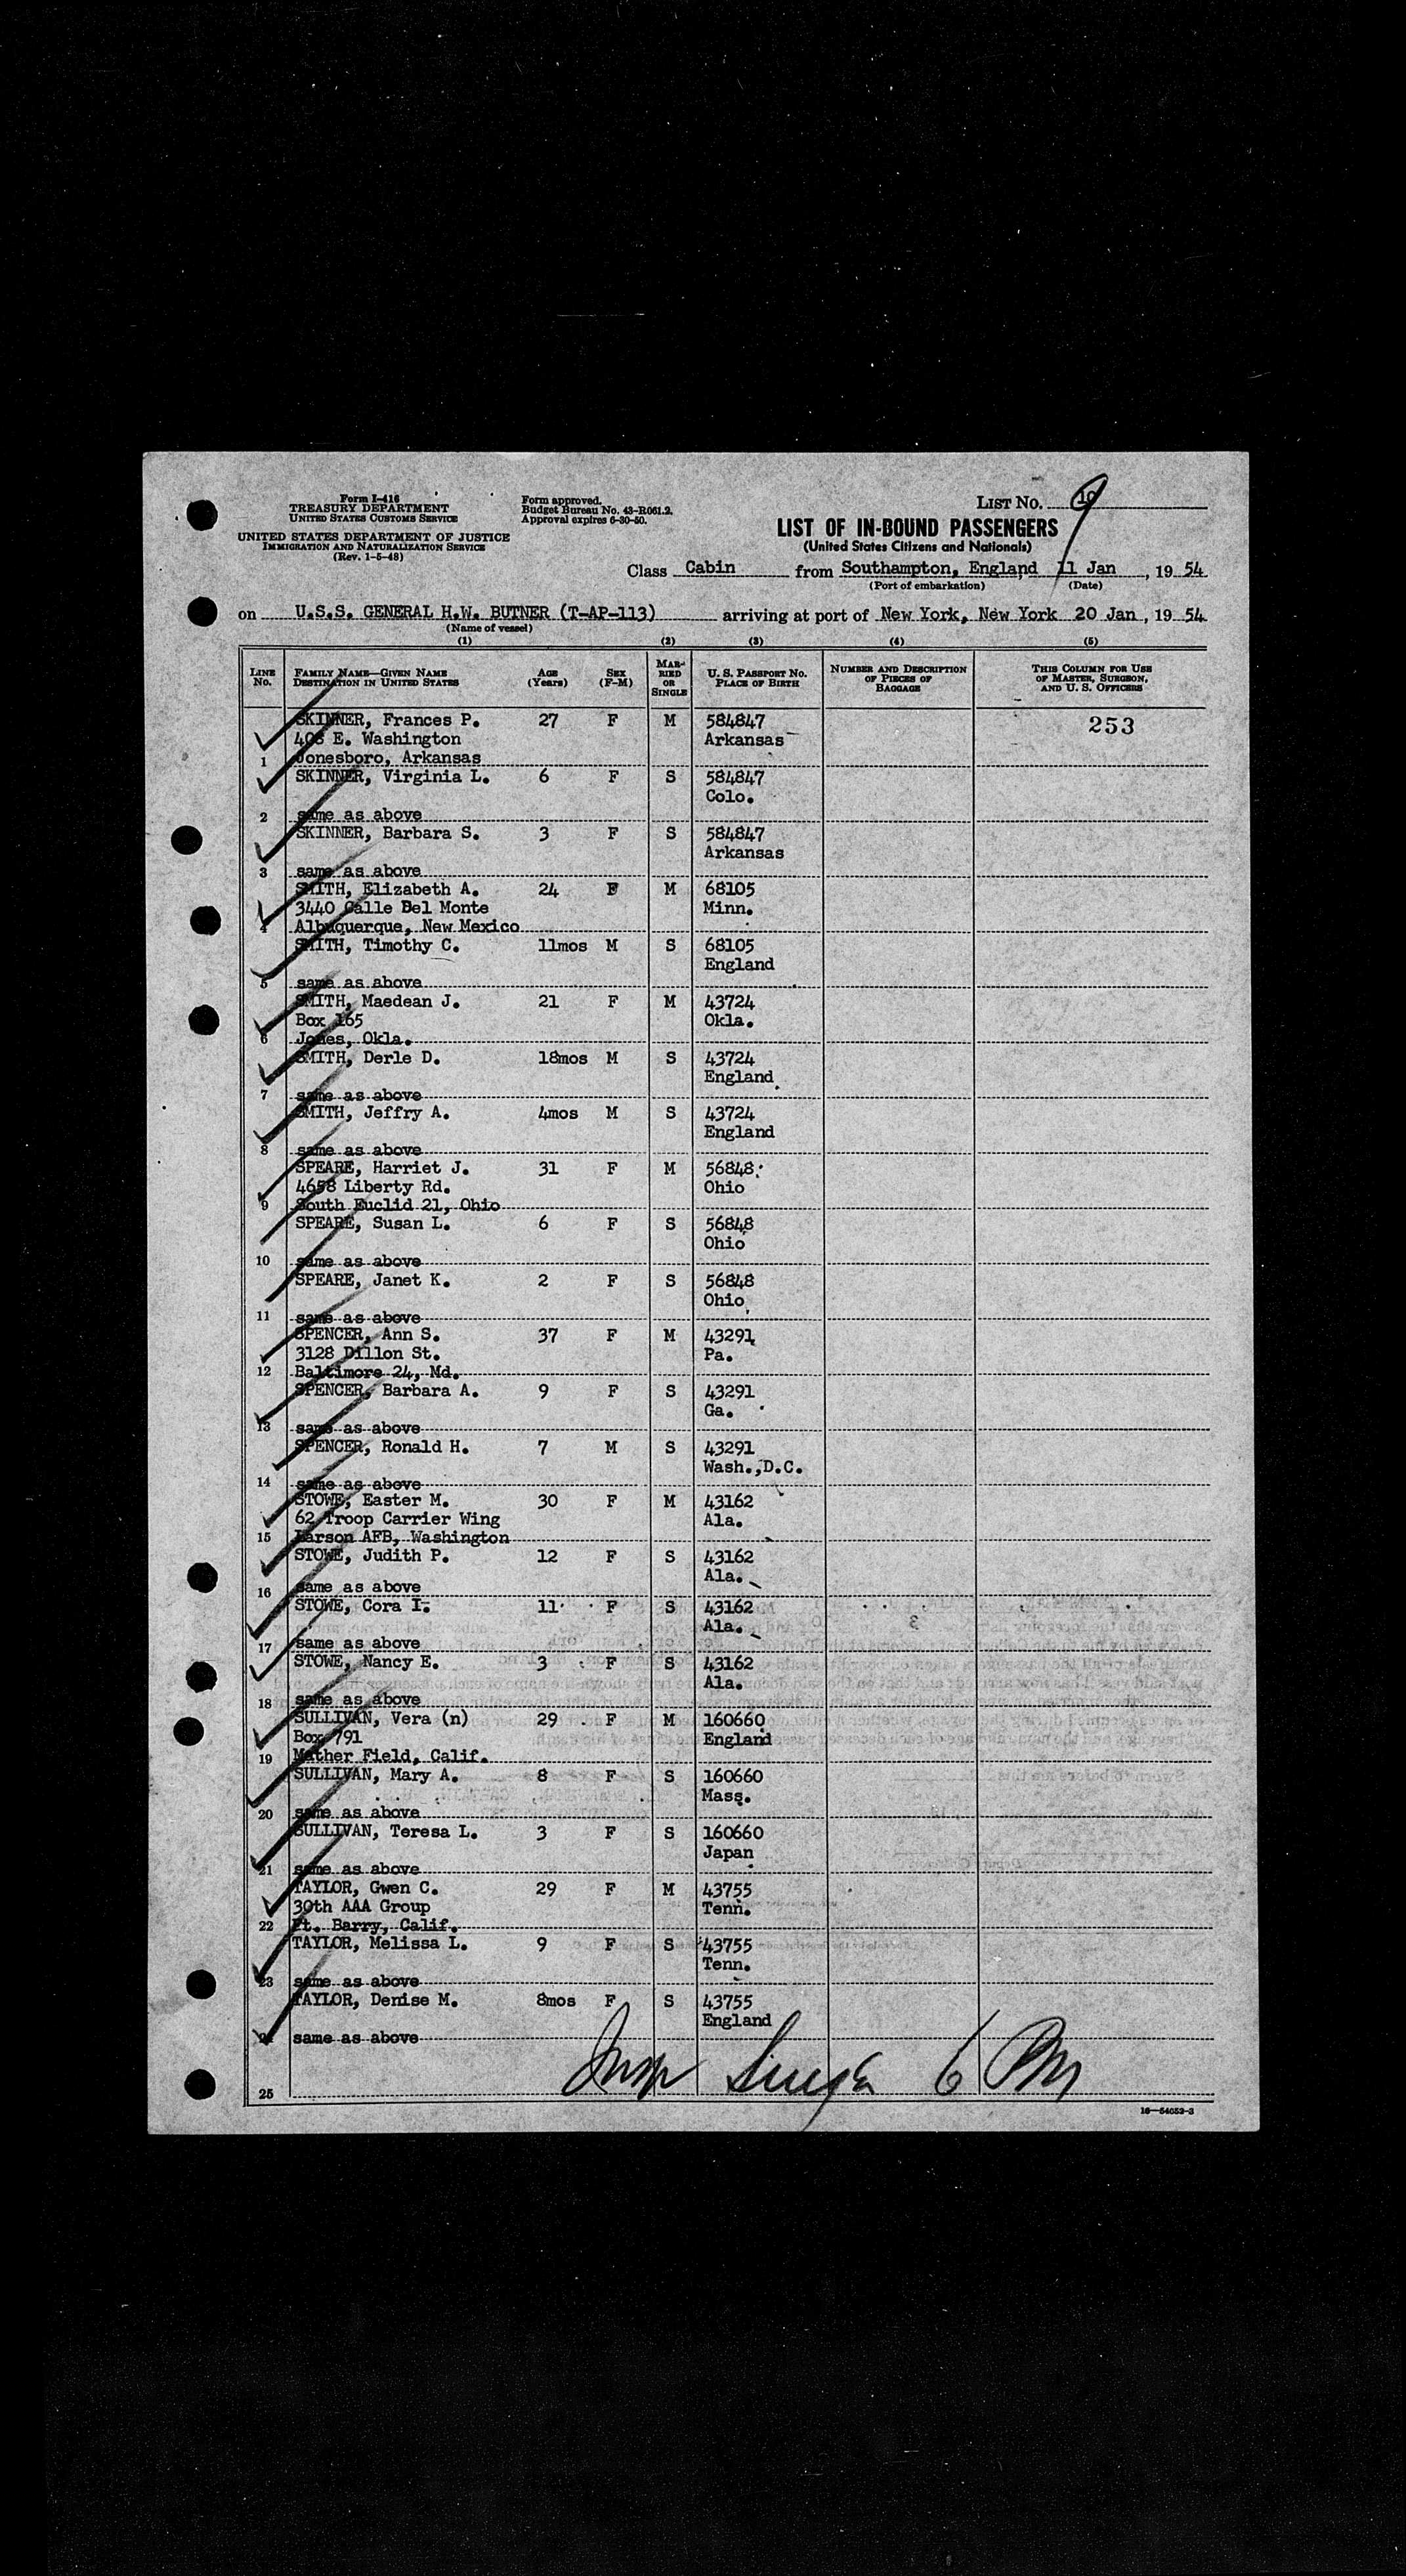 Form I-416
TREASURY DEPARTMENT
UNITED STATES CUSTOMS SERVICE
UNITED STATES DEPARTMENT OF JUSTICE
IMMIGRATION AND NATURALIZATION SERVICE
(Rev. 1-5-48)
Form approved.
Budget Bureau No. 43-R061.2.
Approval expires 6-30-50.
LIST NO. 10 9
LIST OF IN-BOUND PASSENGERS
(United States Citizens and Nationals)
Class Cabin from Southampton, England 11 Jan, 19 54
(Port of embarkation) (Date)
on U.S.S. GENERAL H.W. BUTNER (T-AP-113) arriving at port of New York, New York 20 Jan, 19 54
(Name of vessel)
(1) (2) (3) (4) (5)
LINE No. FAMILY NAME—GIVEN NAME DESTINATION IN UNITED STATES AGE (Years) SEX (F-M) MARRIED OR SINGLE U. S. PASSPORT NO. PLACE OF BIRTH NUMBER AND DESCRIPTION OF PIECES OF BAGGAGE THIS COLUMN FOR USE OF MASTER, SURGEON, AND U. S. OFFICERS
SKINNER, Frances P. 27 F M 584847 253
408 E. Washington Arkansas
1 Jonesboro, Arkansas
SKINNER, Virginia L. 6 F S 584847
Colo.
2 same as above
SKINNER, Barbara S. 3 F S 584847
Arkansas
3 same as above
SMITH, Elizabeth A. 24 F M 68105
3440 Calle Del Monte Minn.
4 Albuquerque, New Mexico
SMITH, Timothy C. 11mos M S 68105
England
5 same as above
SMITH, Maedean J. 21 F M 43724
Box 165 Okla.
6 Jones, Okla.
SMITH, Derle D. 18mos M S 43724
England
7 same as above
SMITH, Jeffry A. 4mos M S 43724
England
8 same as above
SPEARE, Harriet J. 31 F M 56848
4658 Liberty Rd. Ohio
9 South Euclid 21, Ohio
SPEARE, Susan L. 6 F S 56848
Ohio
10 same as above
SPEARE, Janet K. 2 F S 56848
Ohio
11 same as above
SPENCER, Ann S. 37 F M 43291
3128 Dillon St. Pa.
12 Baltimore 24, Md.
SPENCER, Barbara A. 9 F S 43291
Ga.
13 same as above
SPENCER, Ronald H. 7 M S 43291
Wash., D.C.
14 same as above
STOWE, Easter M. 30 F M 43162
62 Troop Carrier Wing Ala.
15 Larson AFB, Washington
STOWE, Judith P. 12 F S 43162
Ala.
16 same as above
STOWE, Cora I. 11 F S 43162
Ala.
17 same as above
STOWE, Nancy E. 3 F S 43162
Ala.
18 same as above
SULLIVAN, Vera (n) 29 F M 160660
Box 791 England
19 Mather Field, Calif.
SULLIVAN, Mary A. 8 F S 160660
Mass.
20 same as above
SULLIVAN, Teresa L. 3 F S 160660
Japan
21 same as above
TAYLOR, Gwen C. 29 F M 43755
30th AAA Group Tenn.
22 Ft. Barry, Calif.
TAYLOR, Melissa L. 9 F S 43755
Tenn.
23 same as above
TAYLOR, Denise M. 8mos F S 43755
England
24 same as above
25 Insp 6 PM
16—54052-3